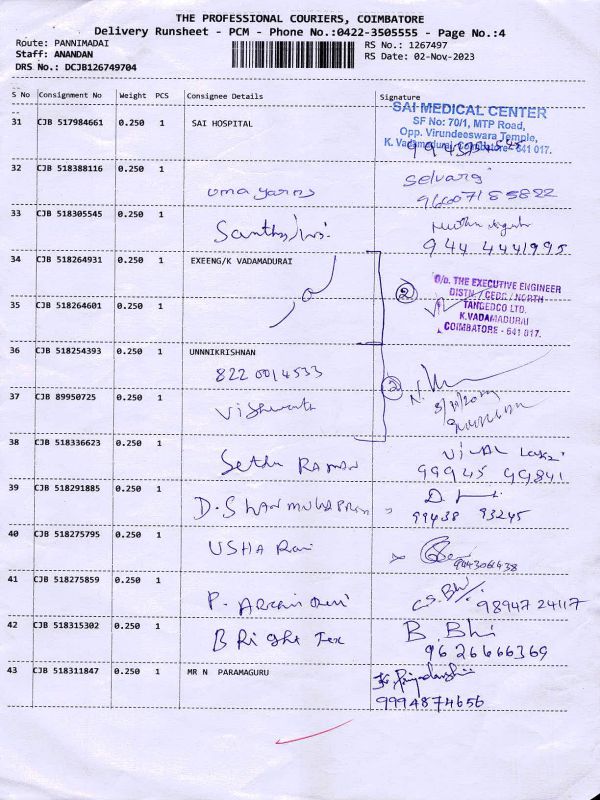 THE PROFESSIONAL COURIERS, COIMBATORE
Delivery Runsheet - PCM - Phone No.:0422-3505555 - Page No.:4
Route: PANNIMADAI
RS No.: 1267497
Staff: ANANDAN
RS Date: 02-Nov-2023
DRS No.: DCJB126749704
S No Consignment No Weight PCS Consignee Details Signature
31 CJB 517984661 0.250 1 SAI HOSPITAL
SAI MEDICAL CENTER
SF No: 70/1, MTP Road,
Opp. Virundeeswara Temple,
K. Vadamadurai, Coimbatore- 641 017.
32 CJB 518388116 0.250 1 uma yarns Selvaraj
33 CJB 518305545 0.250 1
944 4441995
34 CJB 518264931 0.250 1 EXEENG/K VADAMADURAI 2
O/o. THE EXECUTIVE ENGINEER
DISTN / CEDC / NORTH
TANGEDCO LTD.
K.VADAMADURAI
COIMBATORE - 641 017.
35 CJB 518264601 0.250 1
36 CJB 518254393 0.250 1 UNNNIKRISHNAN
8220014533
37 CJB 89950725 0.250 1 2
38 CJB 518336623 0.250 1 Sethu RAMAN
99945 99841
39 CJB 518291885 0.250 1
99438 93245
40 CJB 518275795 0.250 1 USHA Rani
9443061438
41 CJB 518275859 0.250 1 P.
98947 24117
42 CJB 518315302 0.250 1 BRight Tex B. Bhi
9626666369
43 CJB 518311847 0.250 1 MR N PARAMAGURU
9994874656